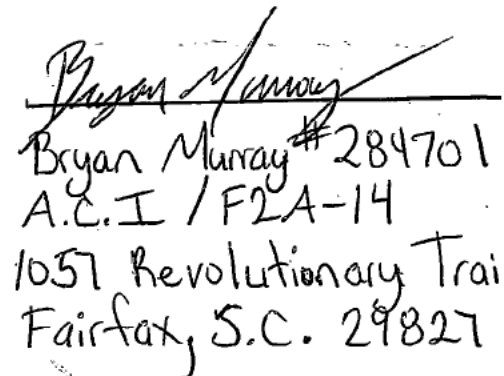 Bryan Murray
Bryan Murray #284701
A.C.I / F2A-14
1057 Revolutionary Trai
Fairfax, S.C. 29827